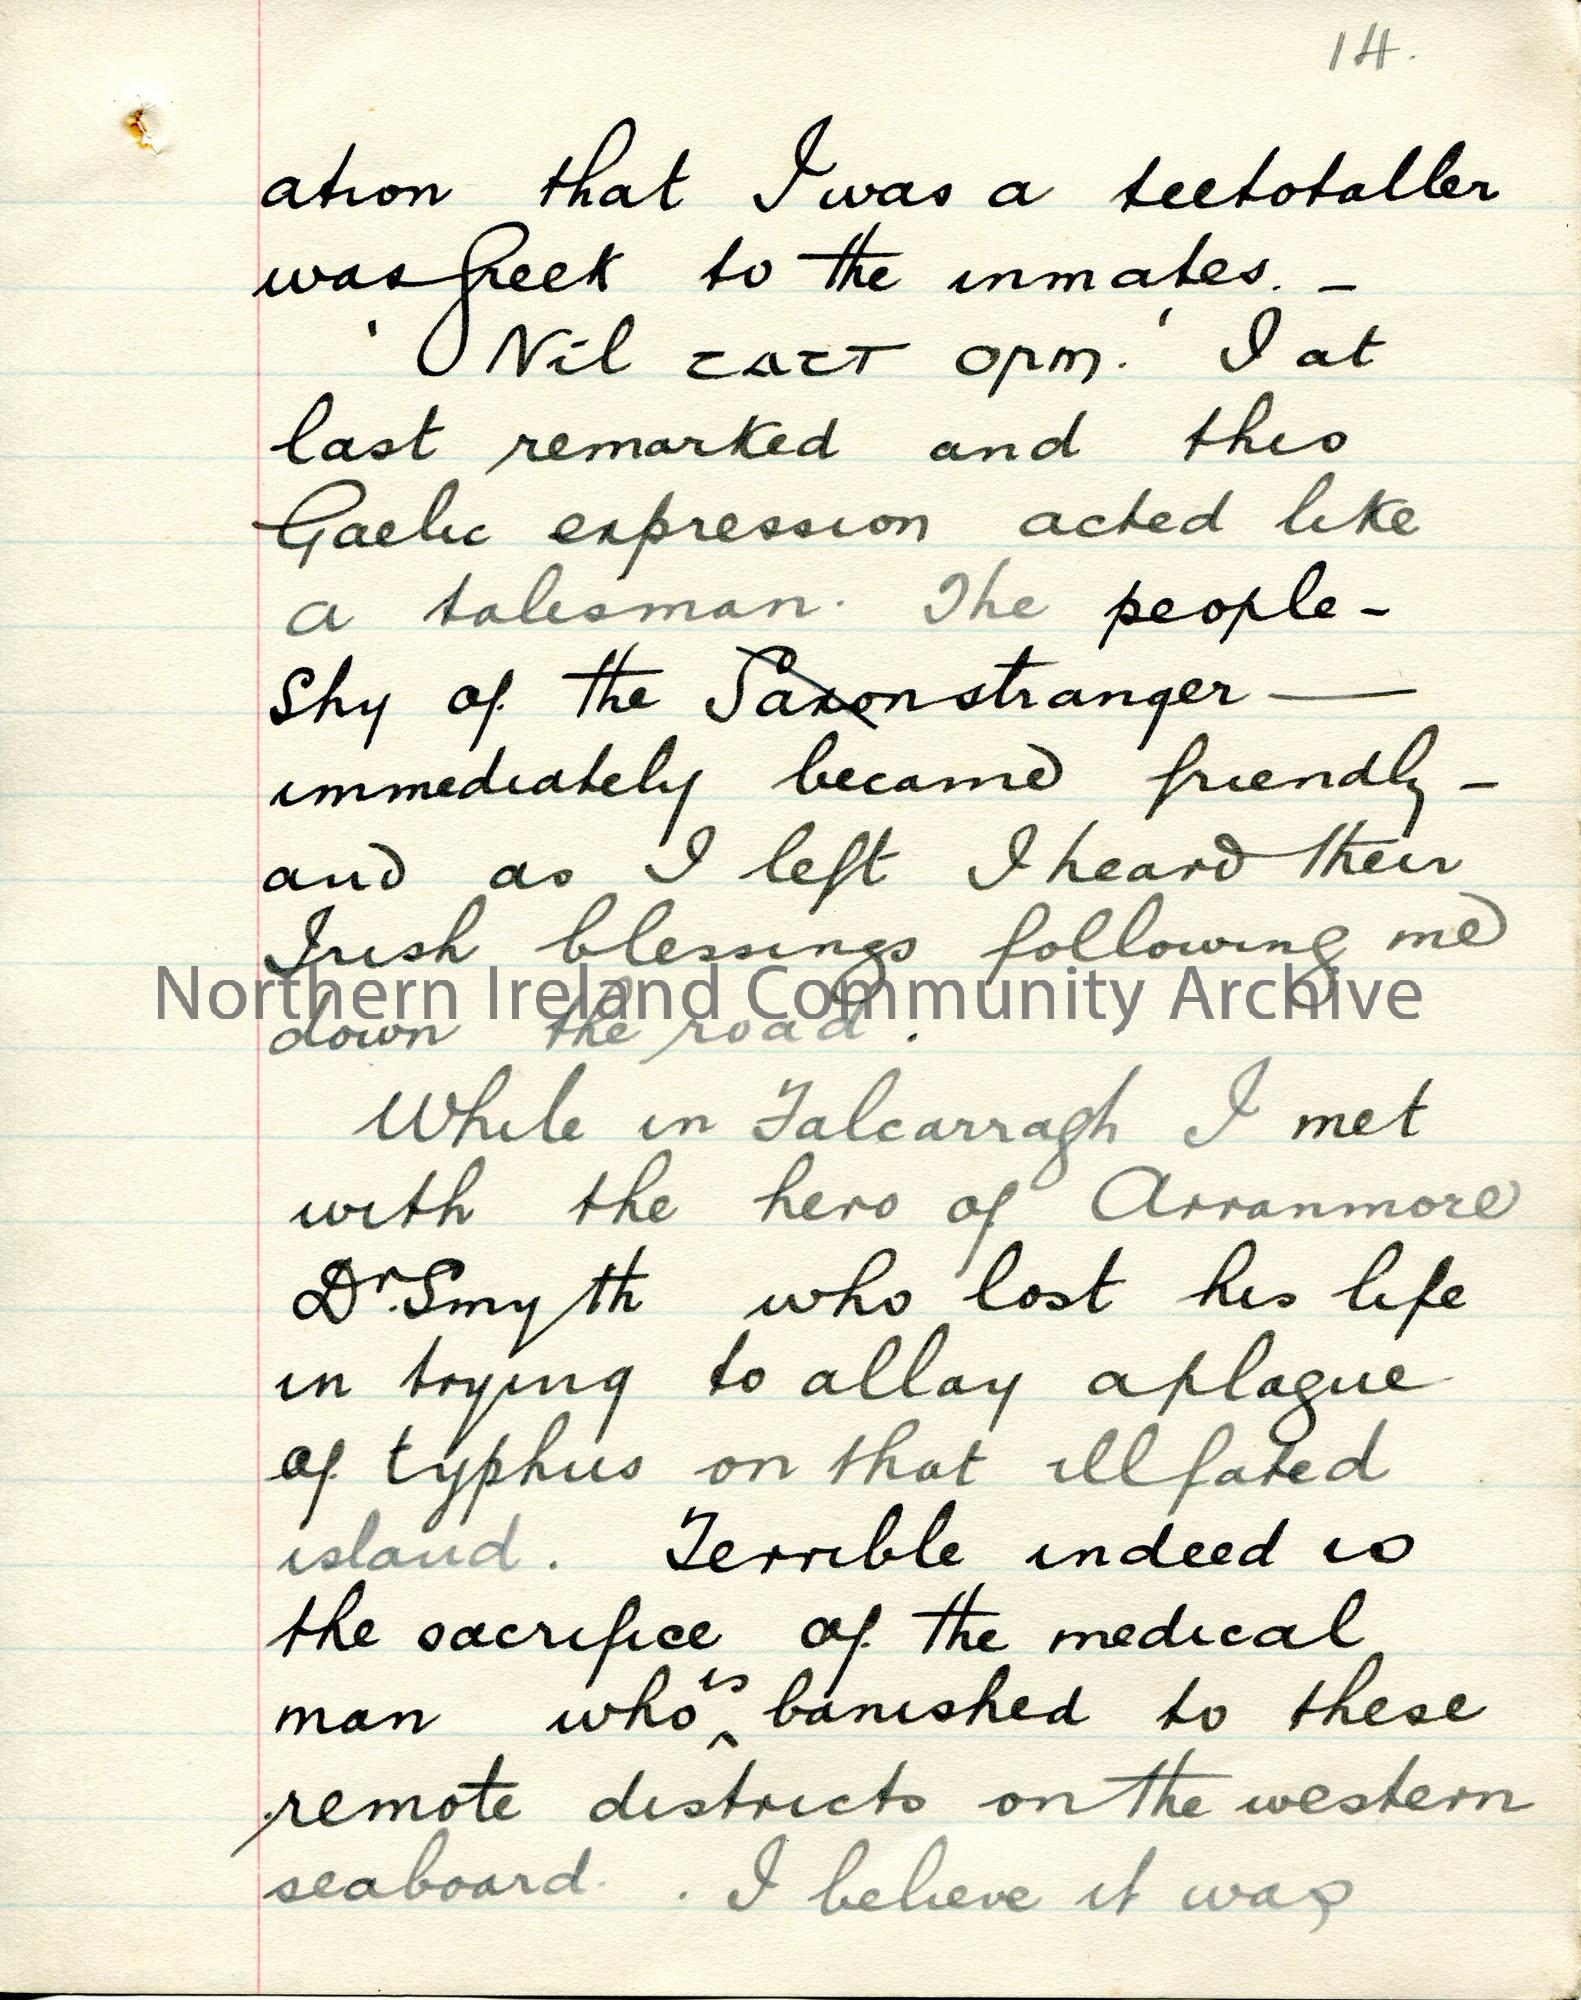 14.
ation that I was a teetotaller
was Greek to the inmates. –
'Níl tart orm.' I at
last remarked and this
Gaelic expression acted like
a talisman. The people –
Shy of the Saxon stranger —
immediately became friendly –
and as I left I heard their
Irish blessings following me
Northern Ireland Community Archive
down the road.
While in Falcarragh I met
with the hero of Arranmore
Dr. Smyth who lost his life
in trying to allay a plague
of typhus on that illfated
island. Terrible indeed is
the sacrifice of the medical
man who is banished to these
remote districts on the western
seaboard. . I believe it was